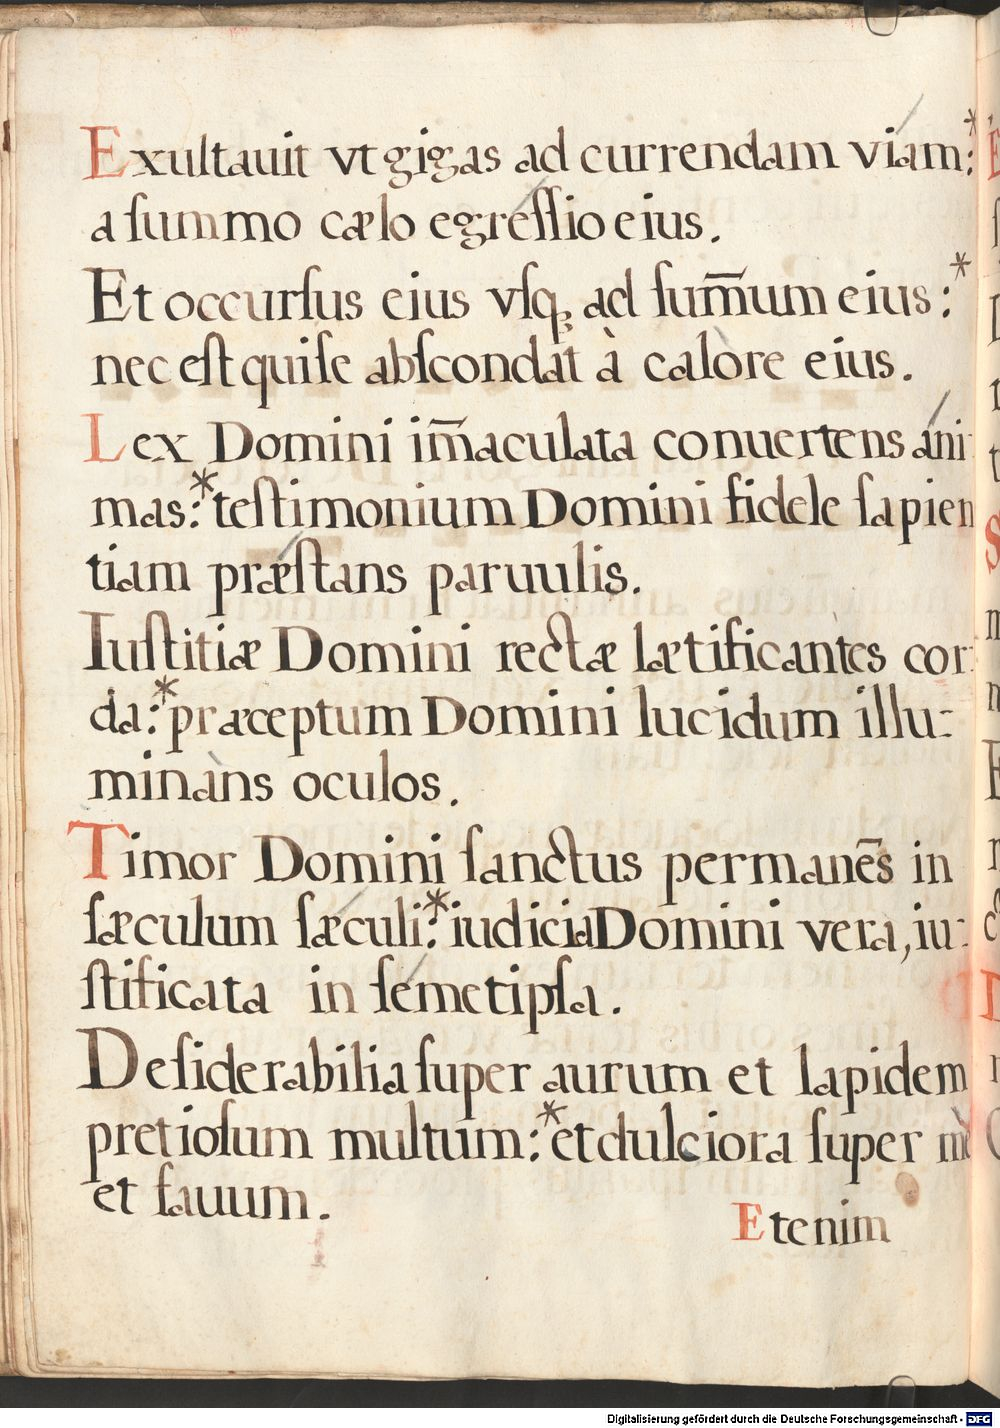 Exultauit vt gigas ad currendam viam:*
a ſummo cælo egreſſio eius.
Et occurſus eius vſq; ad ſum̄um eius:*
nec eſt qui ſe abſcondat à calore eius.
Lex Domini im̄aculata conuertens ani-
mas:* teſtimonium Domini fidele ſapien
tiam præſtans paruulis.
Iuſtitiæ Domini rectæ lætificantes cor-
da:* præceptum Domini lucidum illu-
minans oculos.
Timor Domini ſanctus permanēs in
ſæculum ſæculi:* iudicia Domini vera, iu-
ſtificata in ſemetipſa.
Deſiderabilia ſuper aurum et lapidem
pretioſum multum:* et dulciora ſuper
et fauum.
Etenim
Digitalisierung gefördert durch die Deutsche Forschungsgemeinschaft - DFG